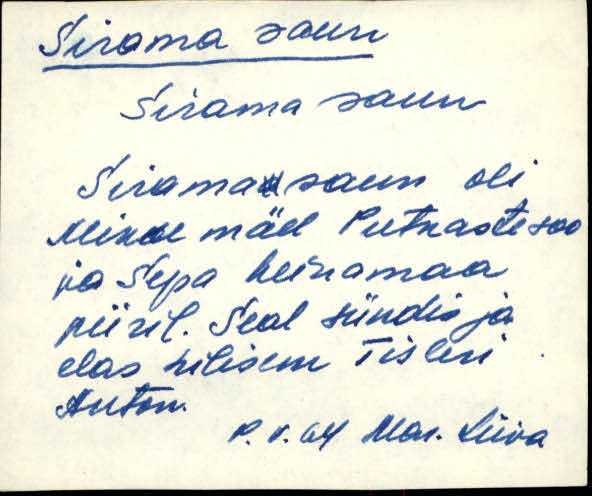 Sirama saun
Sirama saun
Sirama saun oli
mäel Putkaste soo
ja Sepa heinamaa
piiril. Seal sündis ja
elas hilisem Tisleri
Anton.
Mar. Liiva